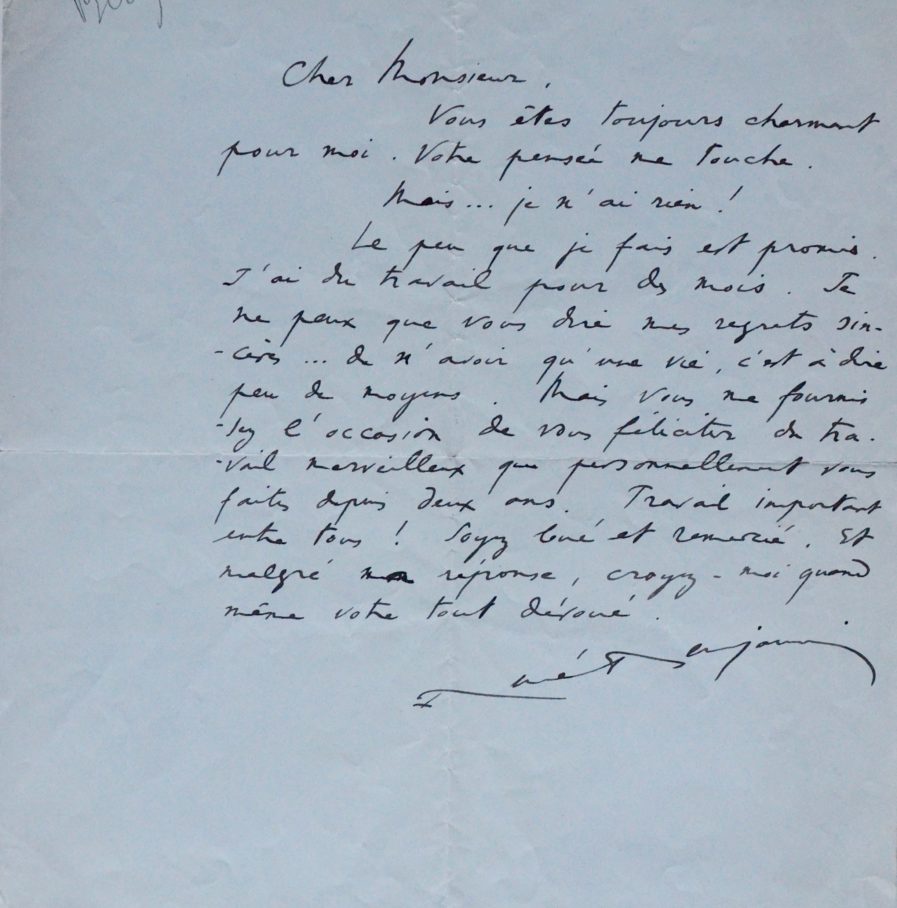 Cher Monsieur,
Vous êtes toujours charmant
pour moi. Votre pensée me touche.
Mais... je n'ai rien !
Le peu que je fais est promis.
J'ai du travail pour des mois. Je
ne peux que vous dire mes regrets sin-
-cères ... de n'avoir qu'une vie, c'est à dire
peu de moyens. Mais vous me fournis
-sez l'occasion de vous féliciter du tra-
-vail merveilleux que personnellement vous
faites depuis deux ans. Travail important
entre tous ! Soyez loué et remercié. Et
malgré ma réponse, croyez-moi quand
même votre tout dévoué.
René Benjamin